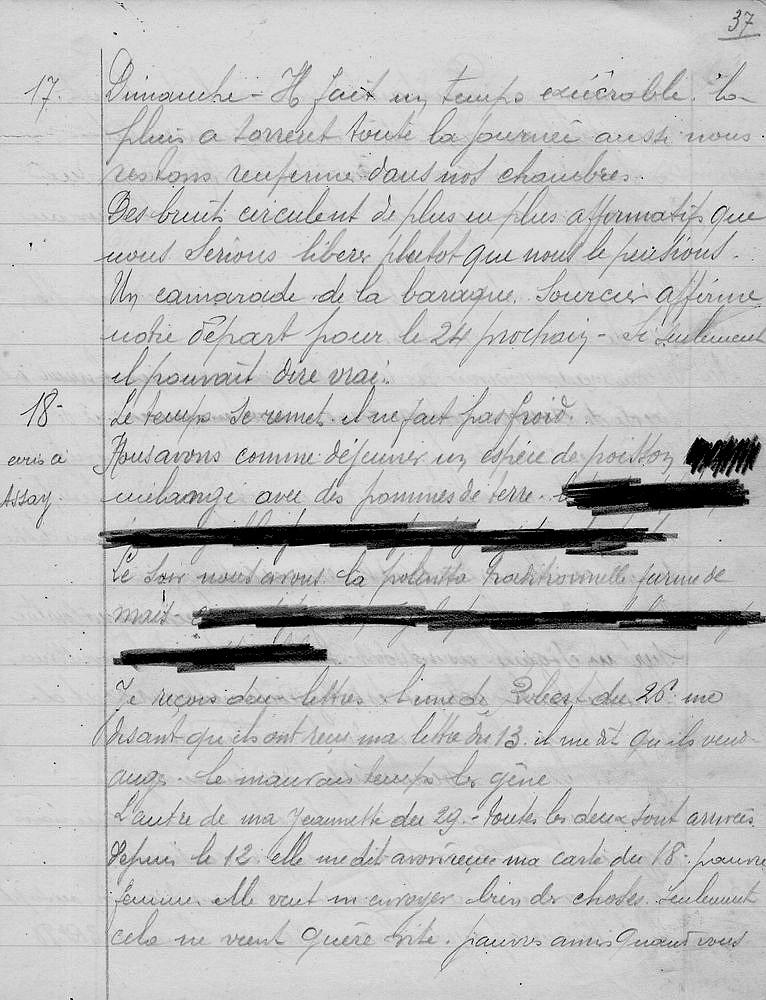 37
17. Dimanche - Il fait un temps exécrable. la
pluie a torrent toute la journée aussi nous
restons renfermé dans nos chambres.
Des bruits circulent de plus en plus affirmatifs que
nous serions libérer plutot que nous le pensions.
Un camarade de la baraque. Sourcier affirme
notre départ pour le 24 prochain - Si seulement
il pouvait dire vrai.
18 - Le temps se remet. il ne fait pas froid.
Nous avons comme déjeuner un espèce de poisson
mélangé avec des pommes de terre.
Assay.
Le soir nous avons la polenta traditionnelle farine de
mais
Je reçois deux lettres. l'une de Robert du 26. me
disant qu'ils ont reçu ma lettre du 13. il me dit qu'ils vend-
ange. le mauvais temps les gêne
L'autre de ma Jeannette du 29. - toutes les deux sont arrivées
depuis le 12. elle me dit avoir reçue ma carte du 18. pauvre
femme elle veut m'envoyer bien des choses. seulement
cela ne vient guère vite. pauvres amis quand vous